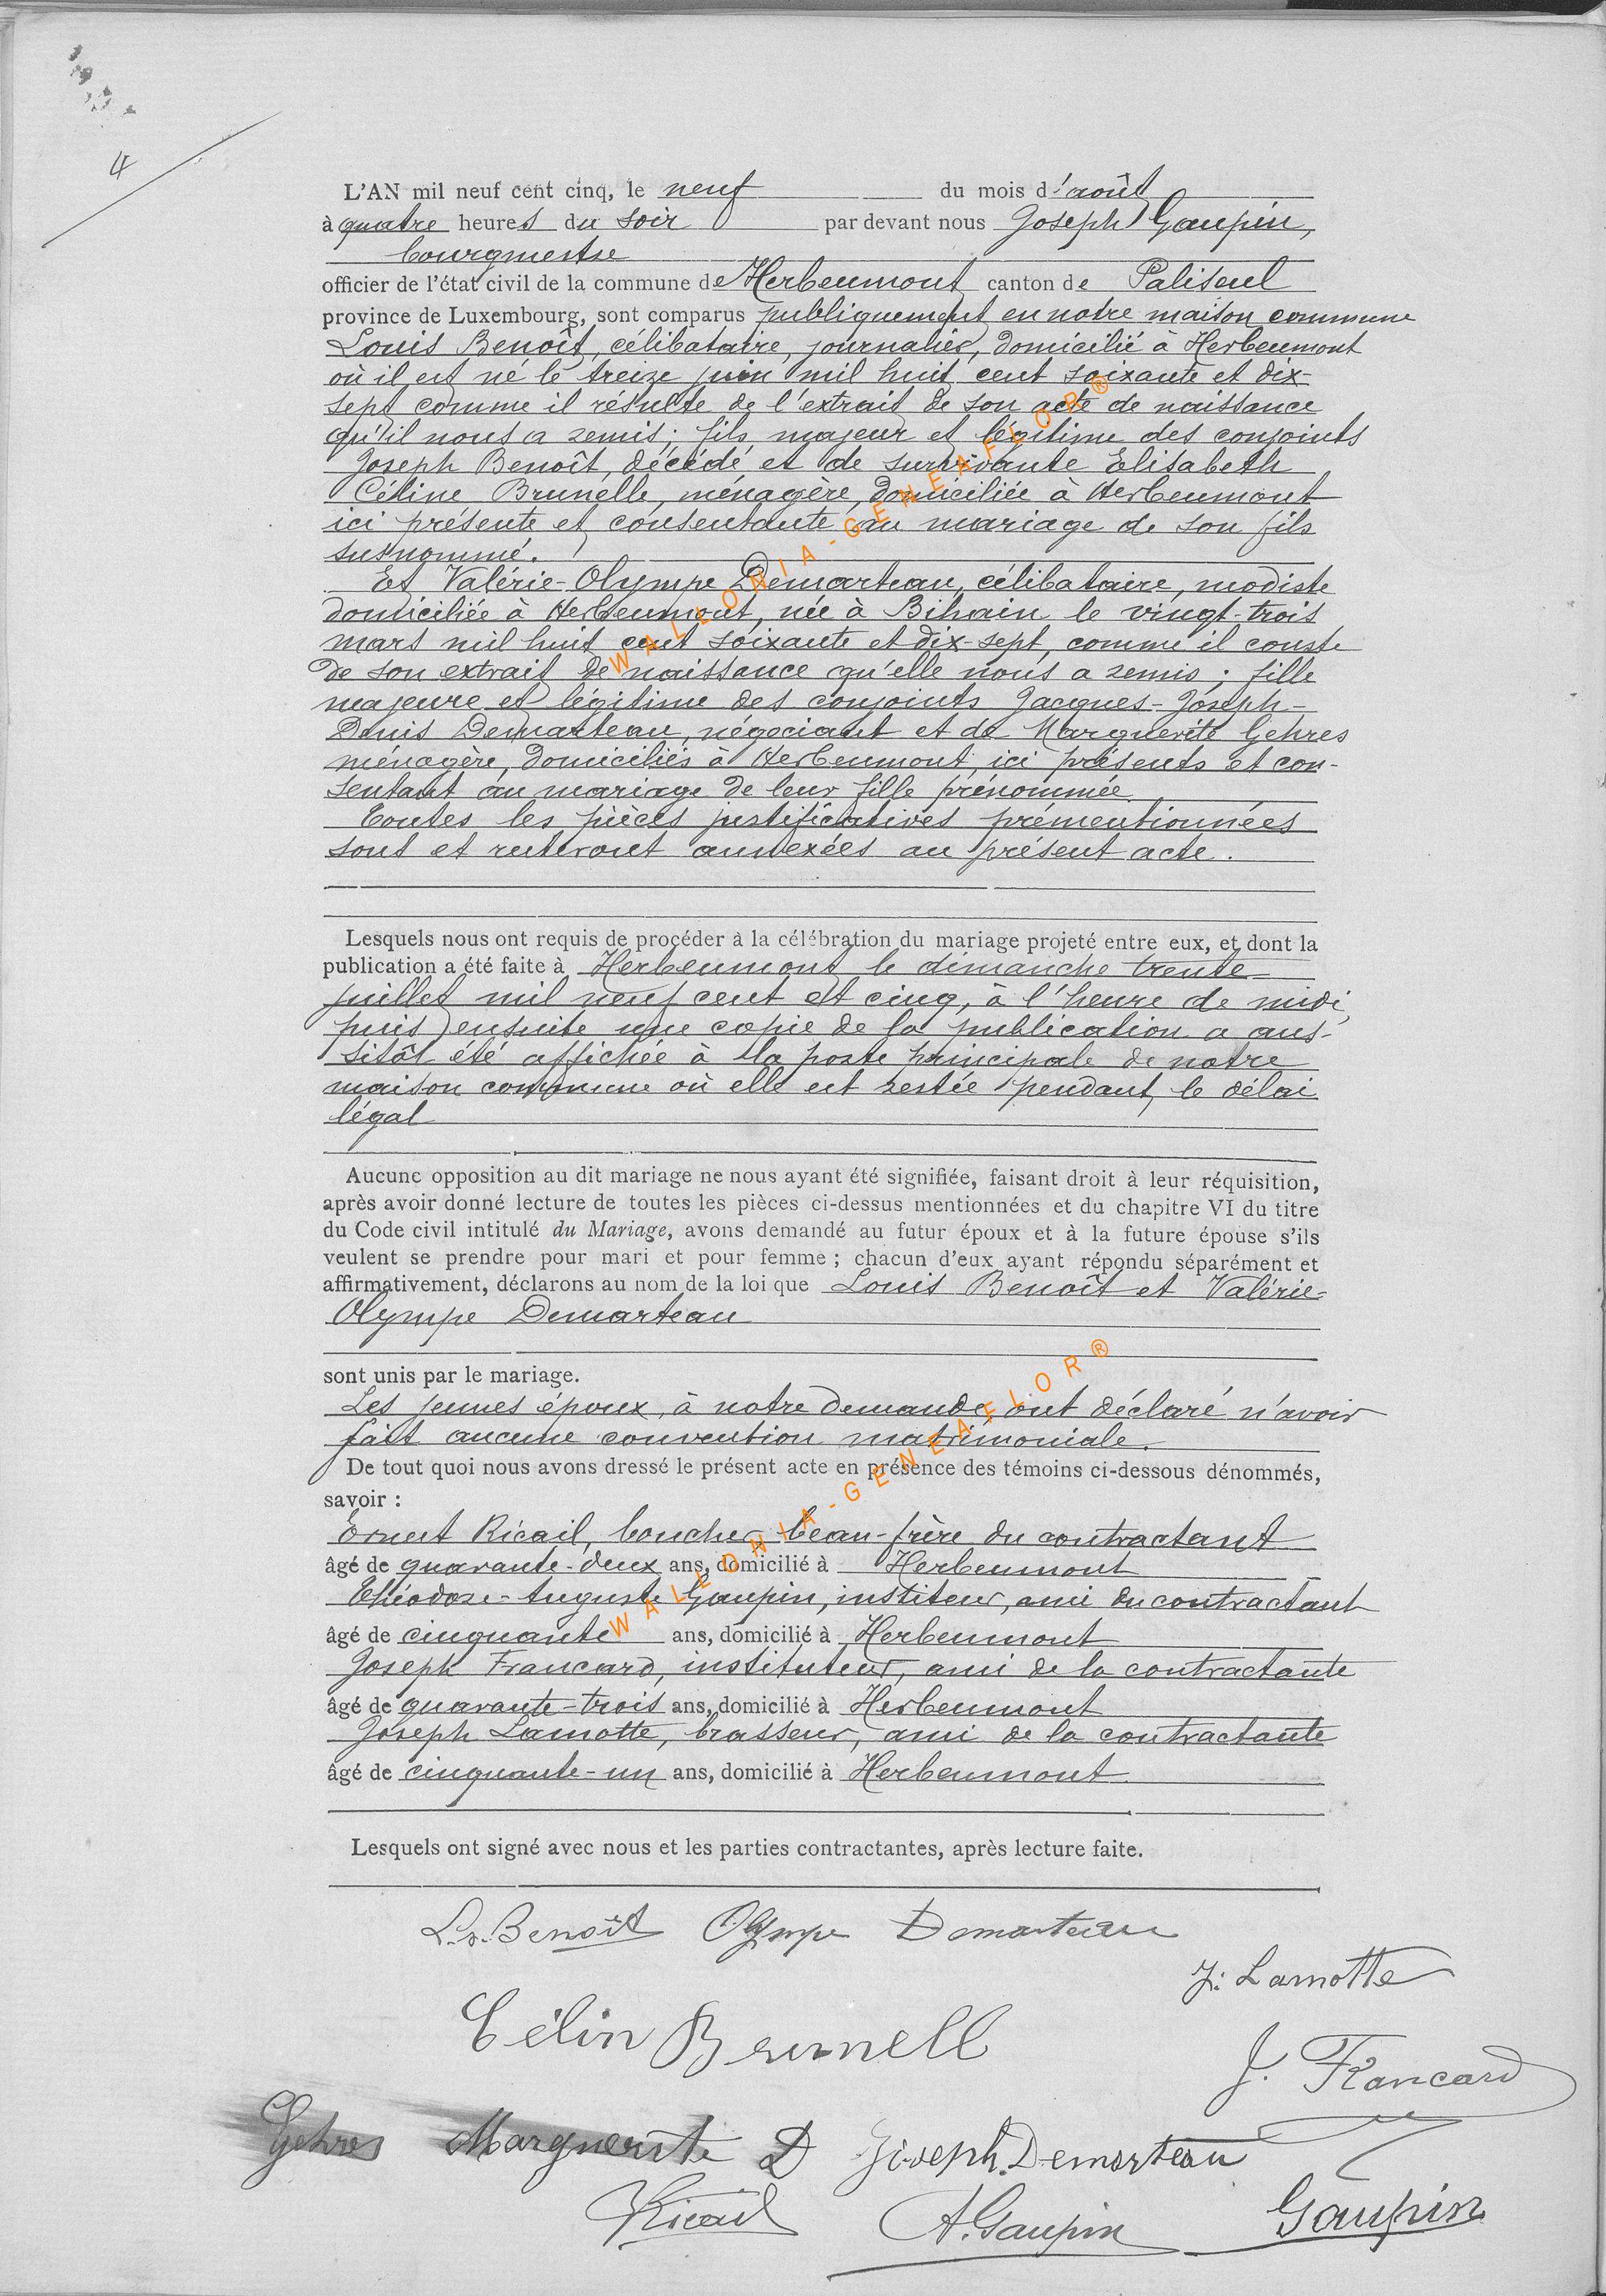 4
L'AN mil neuf cent cinq, le neuf du mois d'août
à quatre heures du soir par devant nous Joseph Gaupin,
bourgmestre
officier de l'état civil de la commune de Herbeumont canton de Paliseul
province de Luxembourg, sont comparus publiquement en notre maison commune
Louis Benoît, célibataire, journalier, domicilié à Herbeumont
où il est né le treize juin mil huit cent soixante et dix-
sept comme il résulte de l'extrait de son acte de naissance
qu'il nous a remis; fils majeur et légitime des conjoints
Joseph Benoît, décédé et de survivante Elisabeth
Céline Brunelle, ménagère, domiciliée à Herbeumont
ici présente et consentante au mariage de son fils
susnommé.
Et Valérie-Olympe Demarteau, célibataire, modiste
domiciliée à Herbeumont, née à Bihain le vingt-trois
mars mil huit cent soixante et dix-sept, comme il conste
de son extrait de naissance qu'elle nous a remis; fille
majeure et légitime des conjoints Jacques-Joseph-
Denis Demarteau, négociant et de Marguerite Gehres
ménagère, domiciliés à Herbeumont, ici présents et con-
sentant au mariage de leur fille prénommée.
Toutes les pièces justificatives prémentionnées
sont et resteront annexées au présent acte.
Lesquels nous ont requis de procéder à la célébration du mariage projeté entre eux, et dont la
publication a été faite à Herbeumont le dimanche trente
juillet mil neuf cent et cinq, à l'heure de midi,
puis ensuite une copie de la publication a aus-
sitôt été affichée à la porte principale de notre
maison commune où elle est restée pendant le délai
légal
Aucune opposition au dit mariage ne nous ayant été signifiée, faisant droit à leur réquisition,
après avoir donné lecture de toutes les pièces ci-dessus mentionnées et du chapitre VI du titre
du Code civil intitulé du Mariage, avons demandé au futur époux et à la future épouse s'ils
veulent se prendre pour mari et pour femme; chacun d'eux ayant répondu séparément et
affirmativement, déclarons au nom de la loi que Louis Benoît et Valérie-
Olympe Demarteau
sont unis par le mariage.
Les jeunes époux, à notre demande ont déclaré n'avoir
fait aucune convention matrimoniale.
De tout quoi nous avons dressé le présent acte en présence des témoins ci-dessous dénommés,
savoir :
Ernest Ricail, boucher, beau-frère du contractant
âgé de quarante-deux ans, domicilié à Herbeumont
Théodore-Auguste Gaupin, institeur, ami du contractant
âgé de cinquante ans, domicilié à Herbeumont
Joseph Francard, instituteur, ami de la contractante
âgé de quarante-trois ans, domicilié à Herbeumont
Joseph Lamotte, brasseur, ami de la contractante
âgé de cinquante-un ans, domicilié à Herbeumont
Lesquels ont signé avec nous et les parties contractantes, après lecture faite.
Ls. Benoît Olympe Demarteau
J. Lamotte
Célin Brunell
J. Francard
Gehres Marguerite D Joseph Demarteau
Ricail A. Gaupin Gaupin
WALLONIA-GENEAFLOR®
WALLONIA-GENEAFLOR®